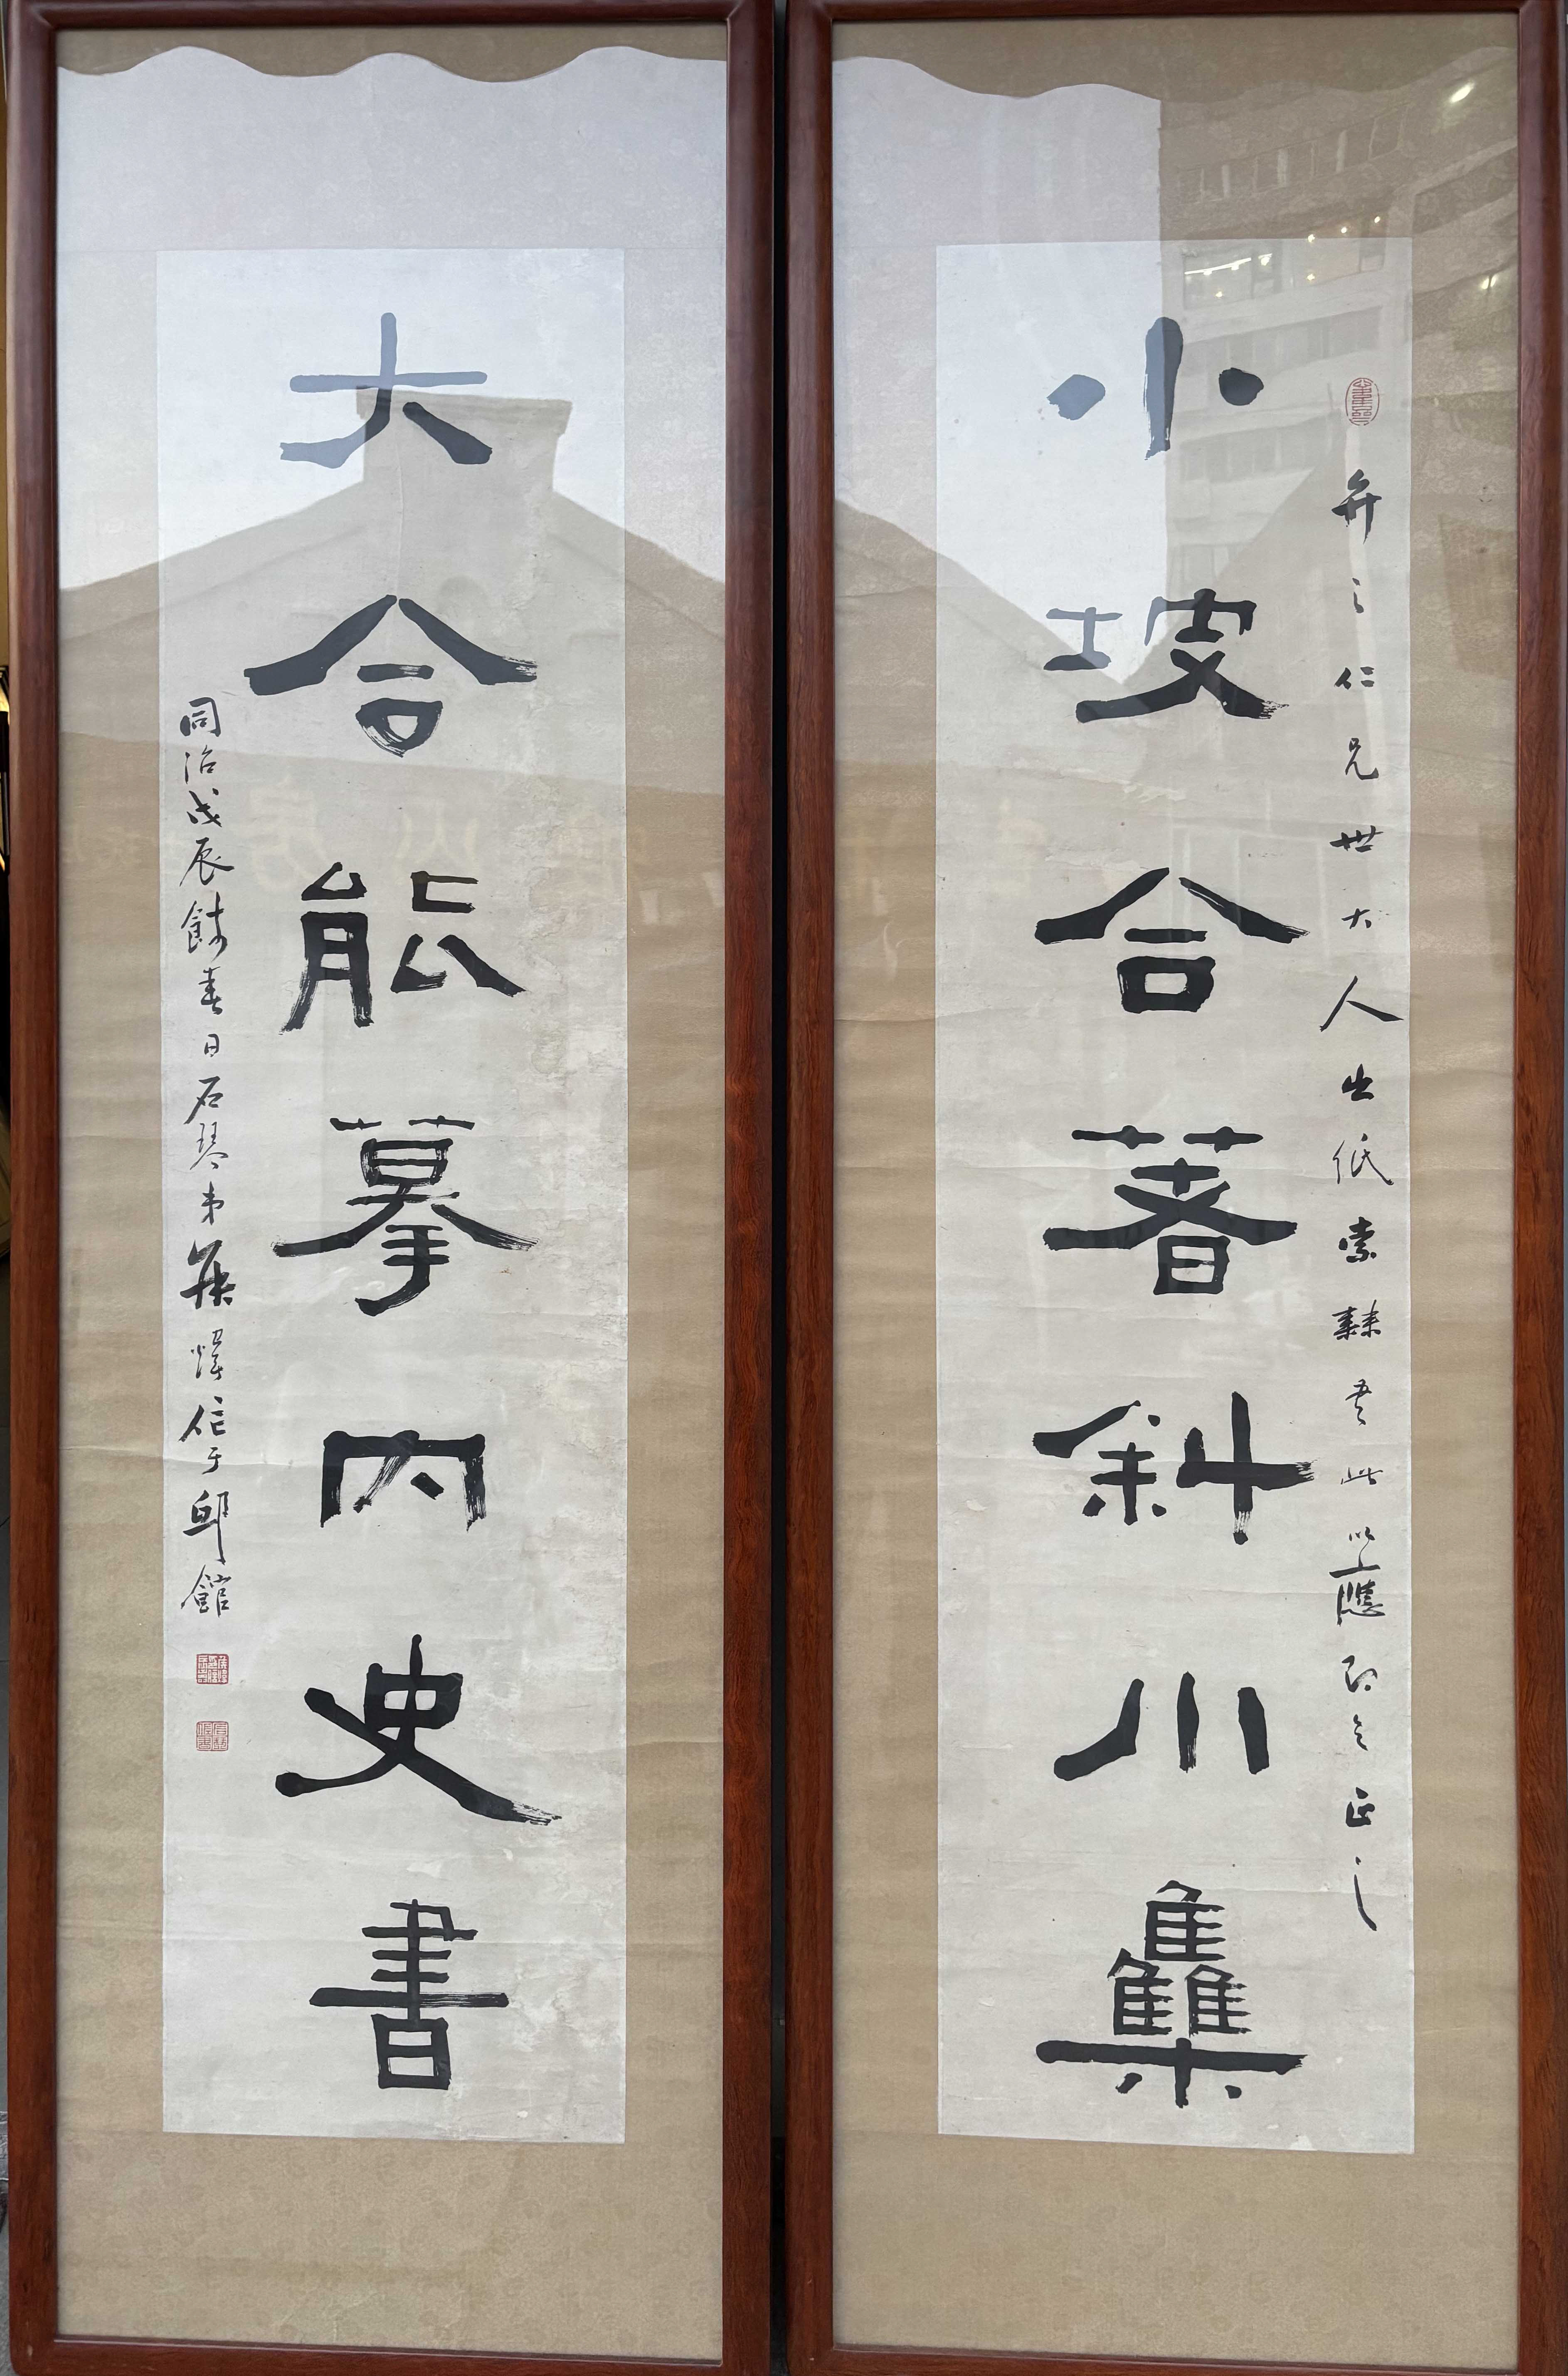 弁之仁兄世大人出紙索隸書此以應即乞正之
小坡合著斜川雧
大令能摹内史書
同治戊辰餞春日石琴弟作于邱館